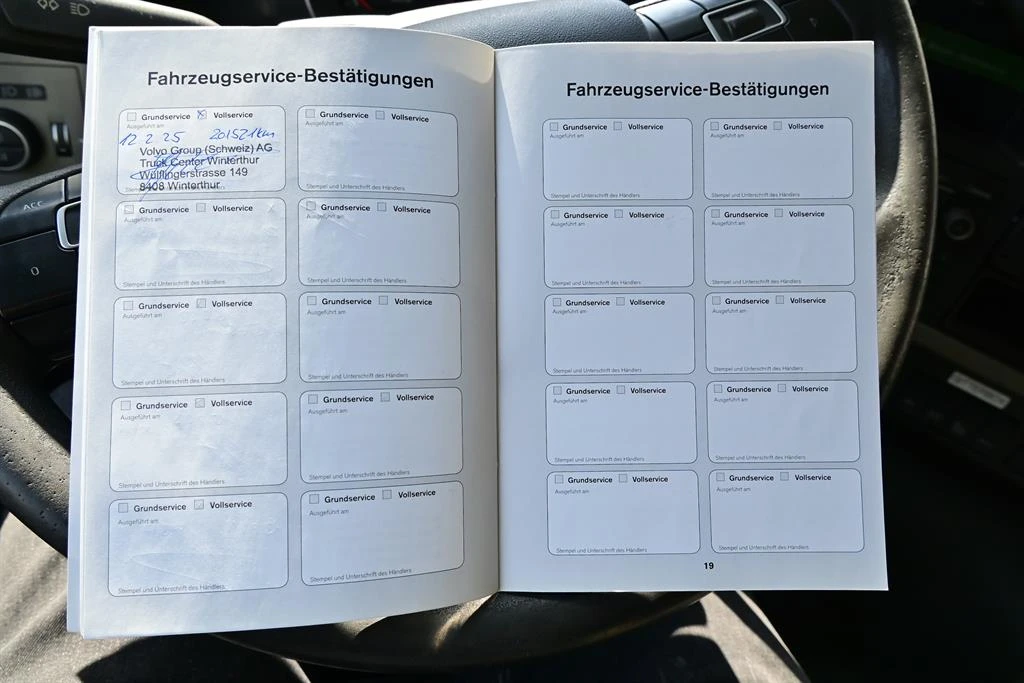 ACC
0
Fahrzeugservice-Bestätigungen
Grundservice Vollservice
Ausgeführt am
12 2 25 201521km
Volvo Group (Schweiz) AG
Truck Center Winterthur
Wülflingerstrasse 149
8408 Winterthur
Grundservice Vollservice
Ausgeführt am
Stempel und Unterschrift des Händlers
Grundservice Vollservice
Ausgeführt am
Stempel und Unterschrift des Händlers
Grundservice Vollservice
Ausgeführt am
Stempel und Unterschrift des Händlers
Grundservice Vollservice
Ausgeführt am
Stempel und Unterschrift des Händlers
Grundservice Vollservice
Ausgeführt am
Stempel und Unterschrift des Händlers
Grundservice Vollservice
Ausgeführt am
Stempel und Unterschrift des Händlers
Grundservice Vollservice
Ausgeführt am
Stempel und Unterschrift des Händlers
Grundservice Vollservice
Ausgeführt am
Stempel und Unterschrift des Händlers
Grundservice Vollservice
Ausgeführt am
Stempel und Unterschrift des Händlers
Fahrzeugservice-Bestätigungen
Grundservice Vollservice
Ausgeführt am
Stempel und Unterschrift des Händlers
Grundservice Vollservice
Ausgeführt am
Stempel und Unterschrift des Händlers
Grundservice Vollservice
Ausgeführt am
Stempel und Unterschrift des Händlers
Grundservice Vollservice
Ausgeführt am
Stempel und Unterschrift des Händlers
Grundservice Vollservice
Ausgeführt am
Stempel und Unterschrift des Händlers
Grundservice Vollservice
Ausgeführt am
Stempel und Unterschrift des Händlers
Grundservice Vollservice
Ausgeführt am
Stempel und Unterschrift des Händlers
Grundservice Vollservice
Ausgeführt am
Stempel und Unterschrift des Händlers
Grundservice Vollservice
Ausgeführt am
Stempel und Unterschrift des Händlers
Grundservice Vollservice
Ausgeführt am
Stempel und Unterschrift des Händlers
19